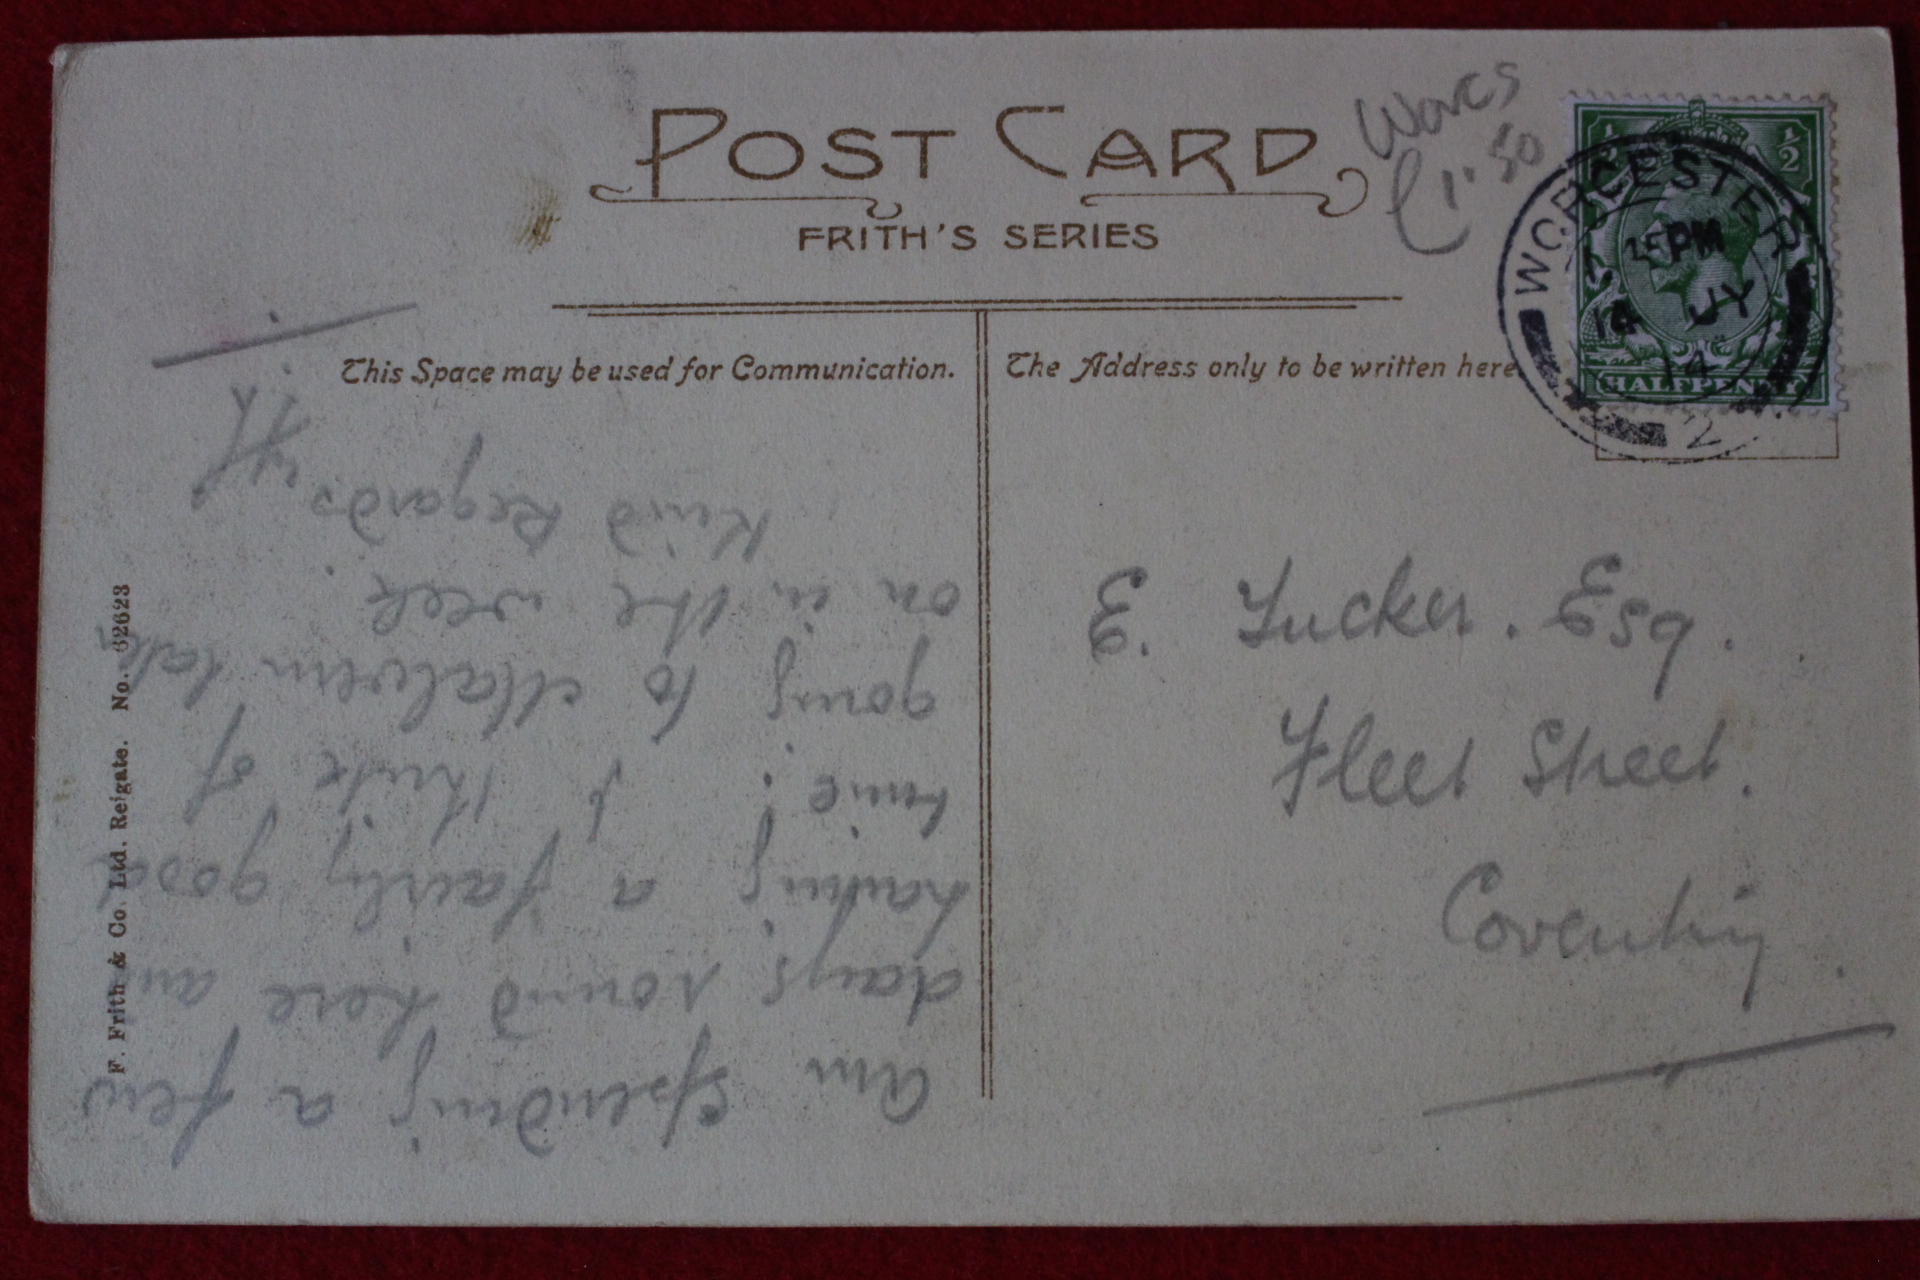 POST CARD
FRITH'S SERIES
Worcs
£1.50
WORCESTER
PM
14 JY
14
2
½ ½
HALFPENNY
This Space may be used for Communication.
The Address only to be written here
E. Tucker. Esq.
Fleet Street.
Coventry.
Am spending a few
days round here am
having a fairly good
time. I think of
going to Malvern later
on in the week.
Kind Regards
F. Frith & Co. Ltd. Reigate. No. 62623